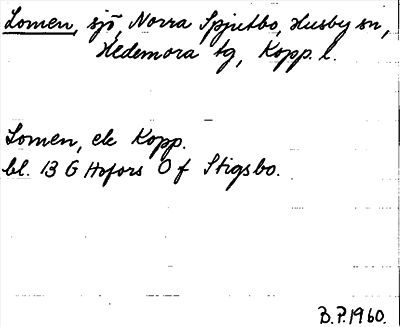 Lomen, sjö, Norra Spjutbo, Husby sn,
Hedemora tg, Kopp. l.
Lomen, ek Kopp.
bl. 13 G Hofors O f Stigsbo.
B.P. 1960.